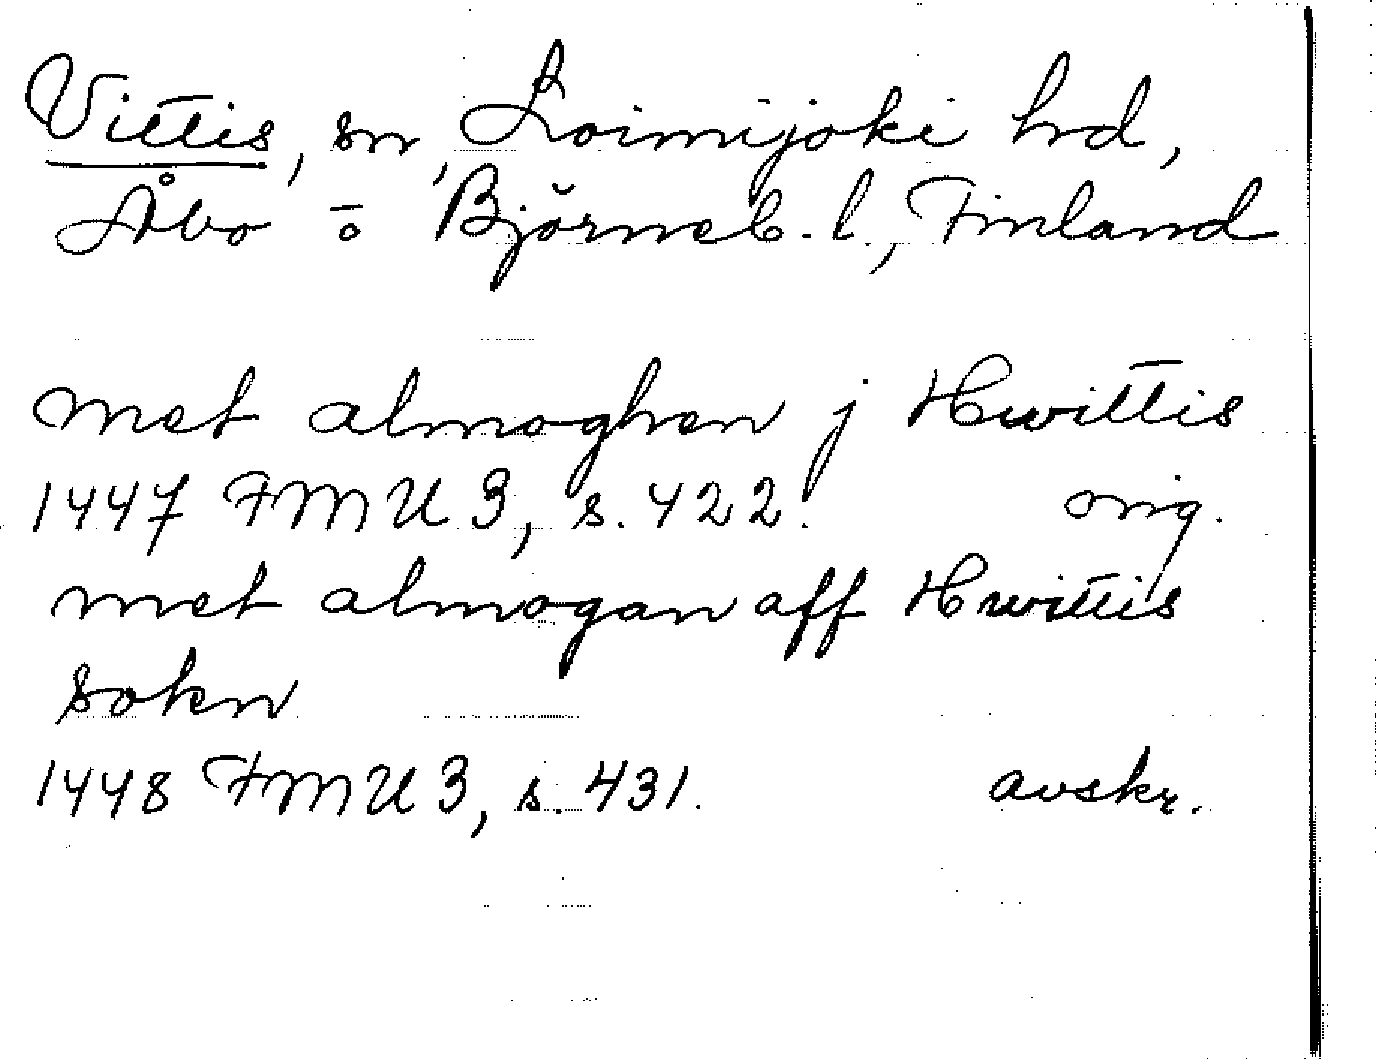 Vittis, sn, Loimijoki hd,
Åbo o Björneb. l., Finland
met almoghen j Hwittis
1447 FMU 3, s. 422. orig.
met almogan aff Hwittis
sokn
1448 FMU 3, s. 431. avskr.